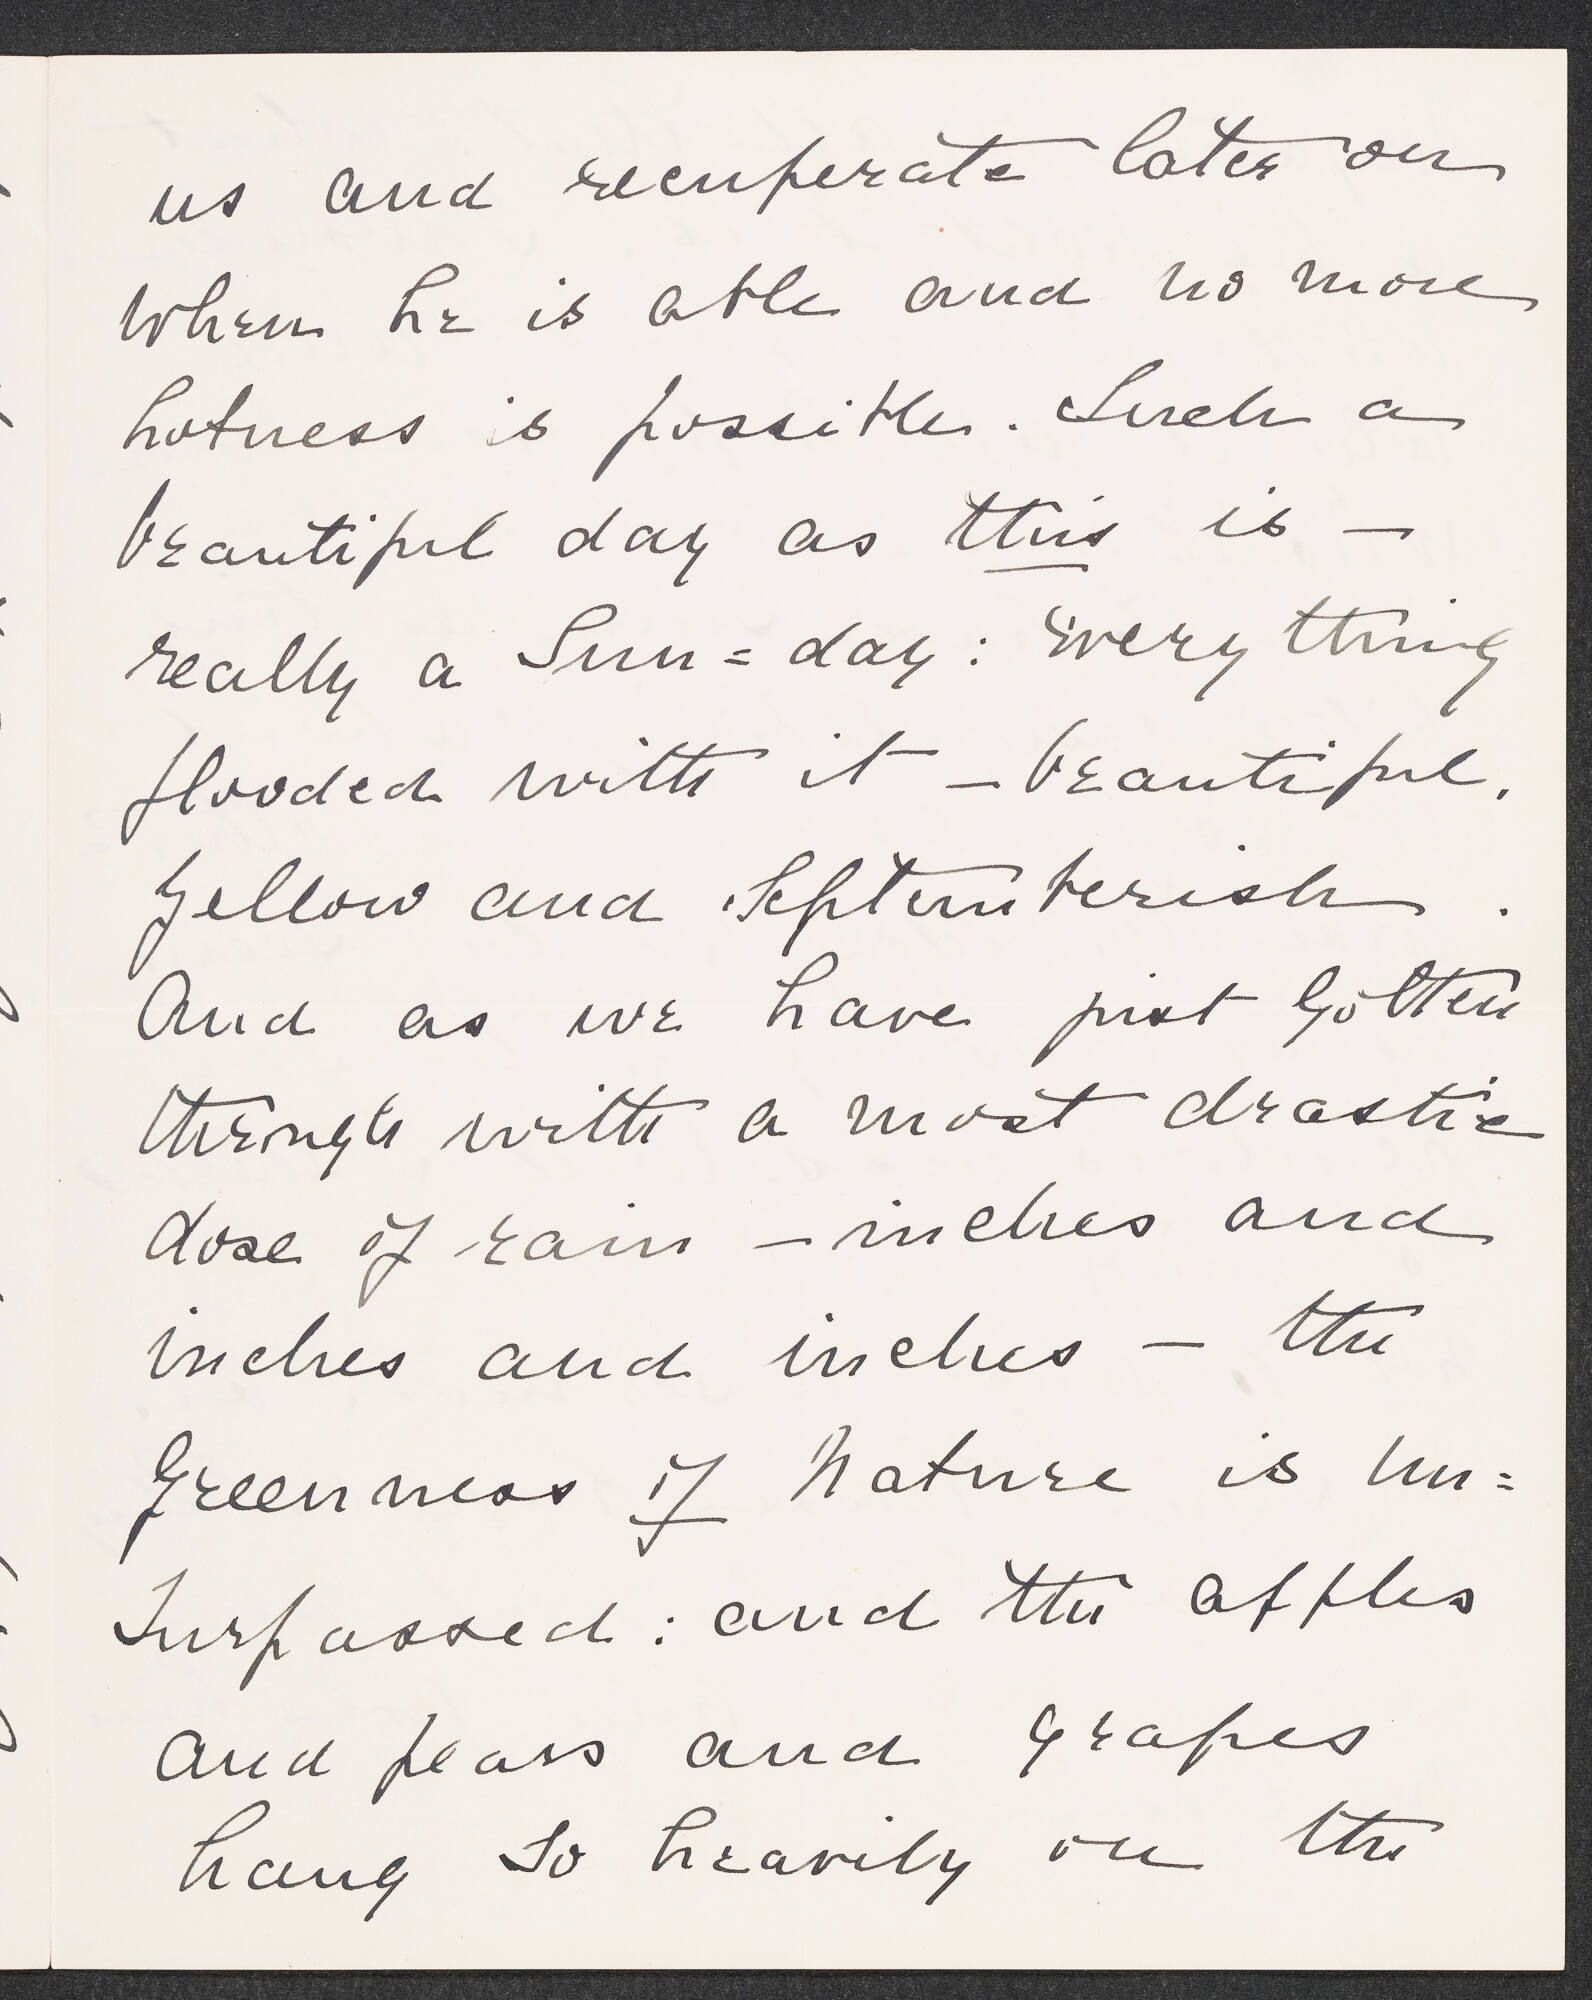 us and recuperate later on
when he is able and no more
hotness is possible. Such a
beautiful day as this is —
really a Sun=day: every thing
flooded with it — beautiful.
Yellow and Septemberish.
And as we have just gotten
through with a most drastic
dose of rain — inches and
inches and inches — the
Greenness of Nature is un=
surpassed: and the apples
and pears and grapes
hang so heavily on the